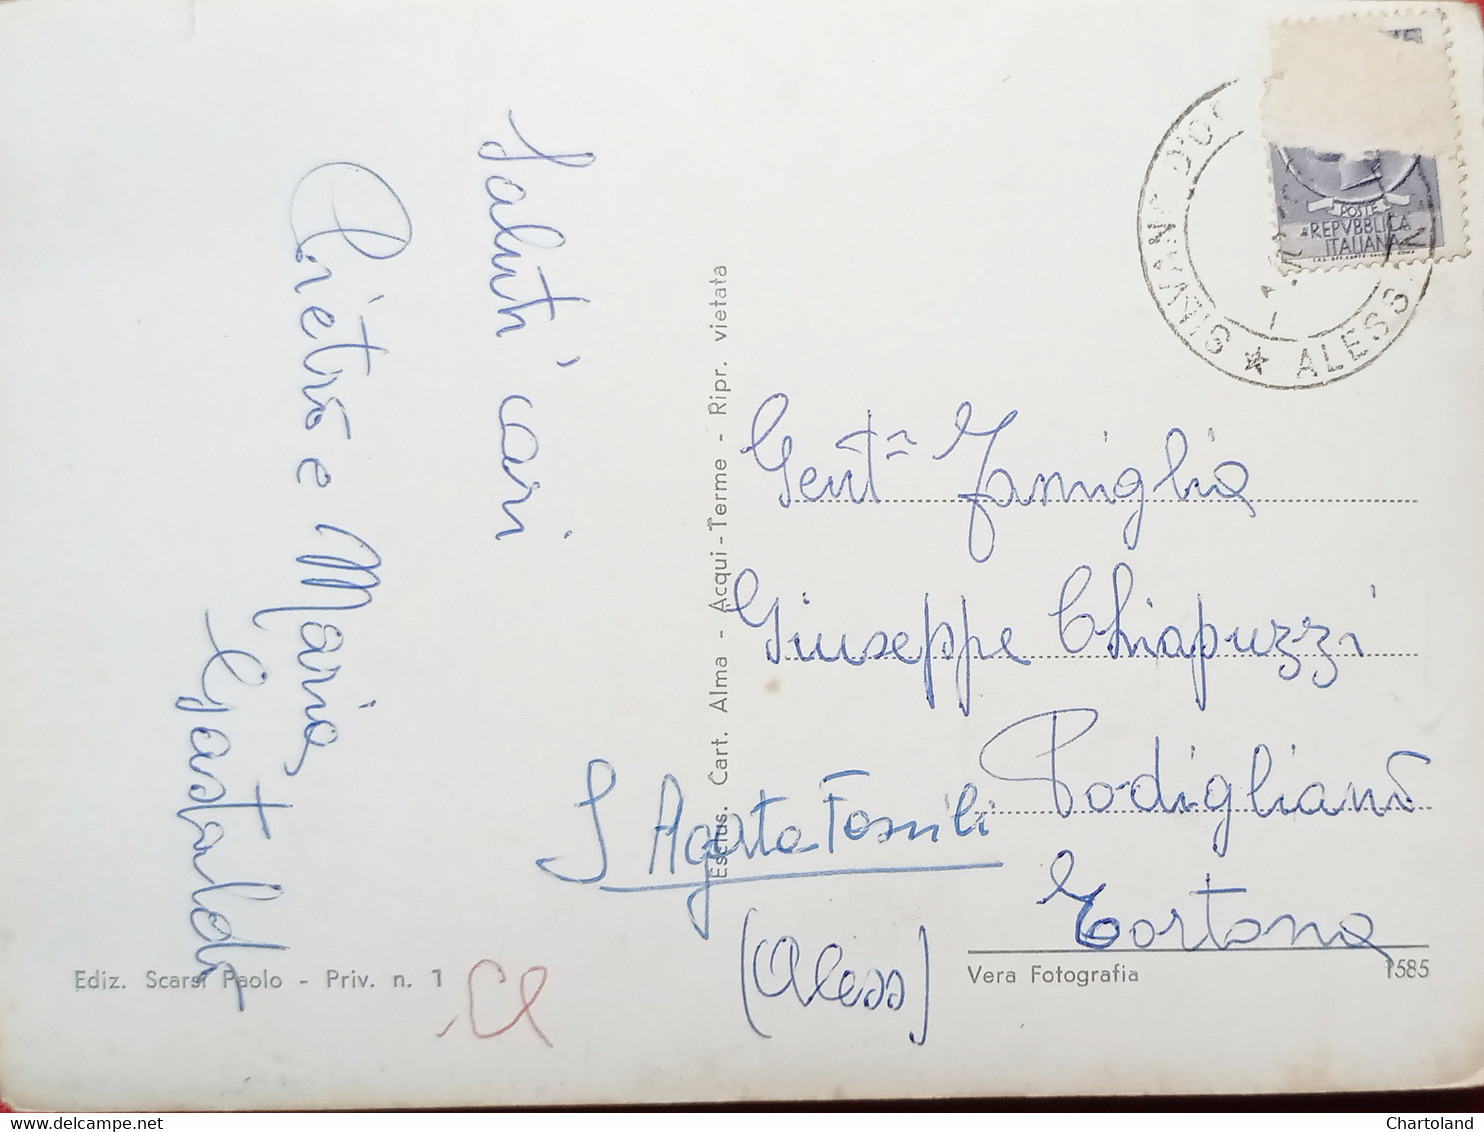 Saluti cari
Pietro e Maria
Gastaldo
Gent.ma Famiglia
Giuseppe Chiapuzzi
Podigliano
Tortona
S Agata Fossili
(Aless)
POSTE
REPVBBLICA
ITALIANA
ALESS
Esclus. Cart. Alma - Acqui-Terme - Ripr. vietata
Ediz. Scarsi Paolo - Priv. n. 1
Vera Fotografia
1585
Chartoland